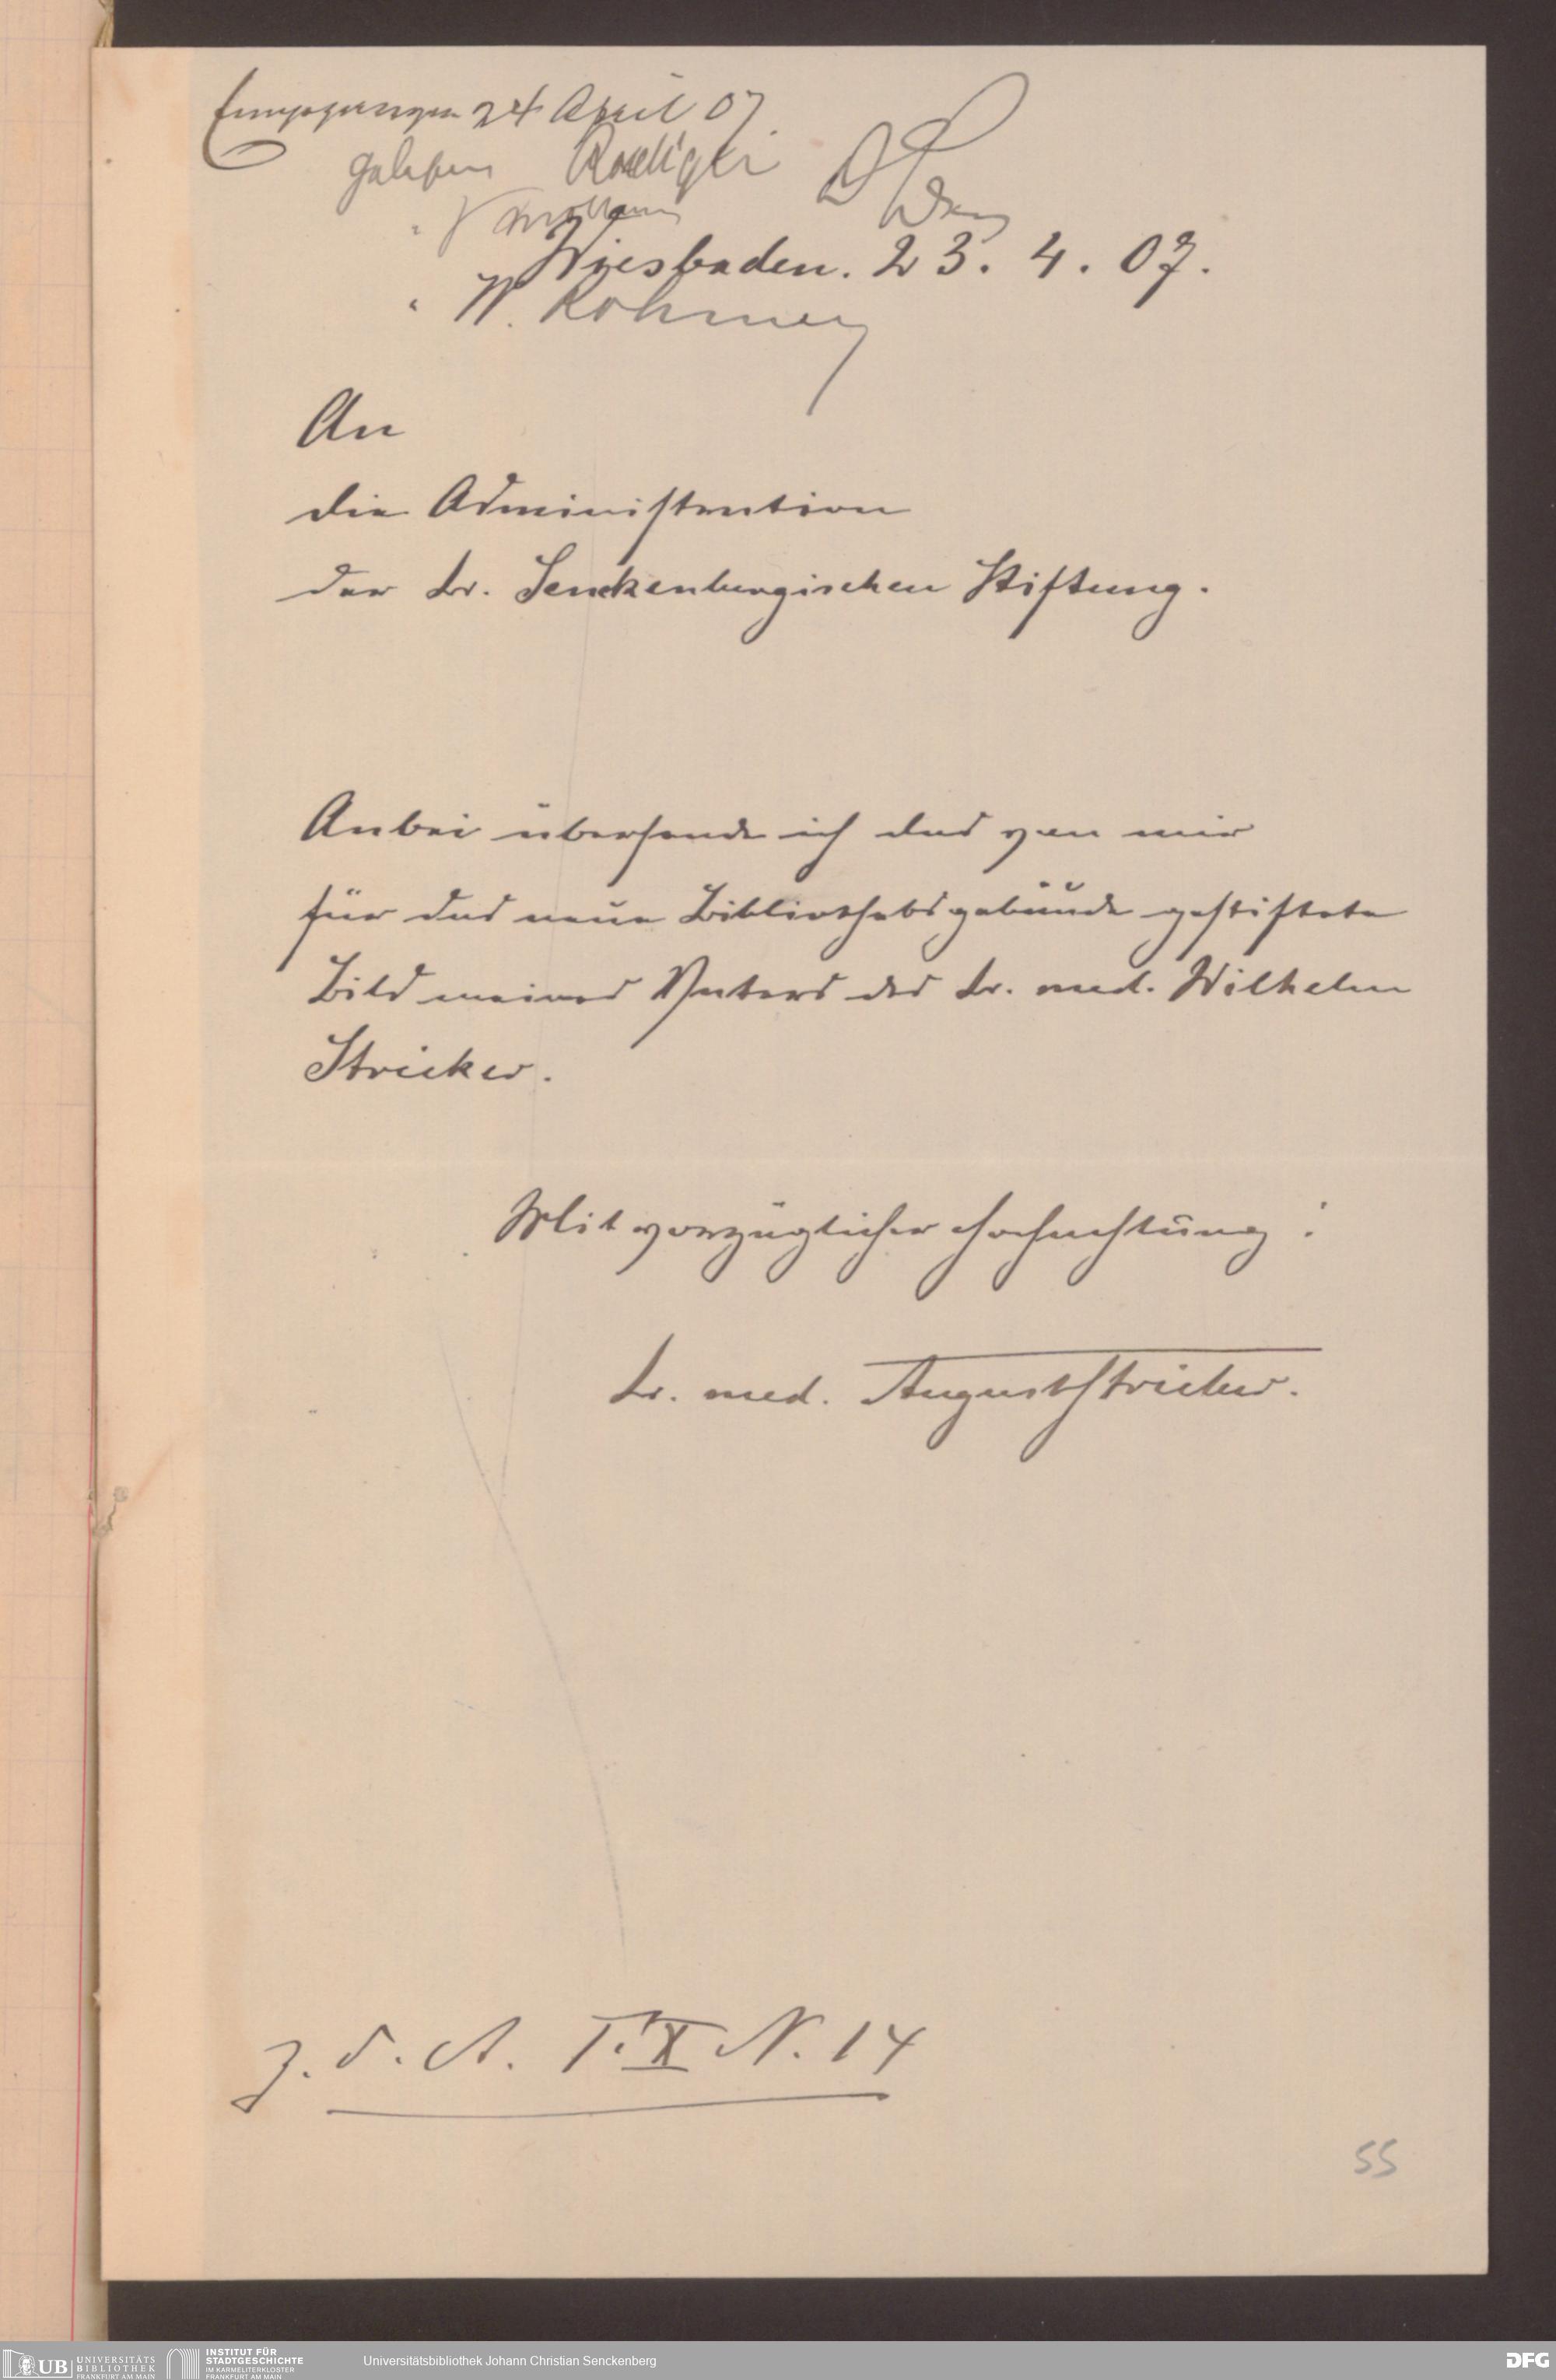 Eingegangen 24 April 07
gelesen Roediger
" Knoblauch
Wiesbaden. 23. 4. 07.
" W. Rohmer
An
die Administration
der Dr. Senckenbergischen Stiftung.
Anbei übersende ich das von mir
für das neue Bibliotheksgebäude gestiftete
Bild meines Vaters des Dr. med. Wilhelm
Stricker.
Mit vorzüglicher Hochachtung:
Dr. med. August Stricker.
z. d. A. T. X N. 14
55
UB UNIVERSITÄTS
BIBLIOTHEK
FRANKFURT AM MAIN
INSTITUT FÜR
STADTGESCHICHTE
IM KARMELITERKLOSTER
FRANKFURT AM MAIN
Universitätsbibliothek Johann Christian Senckenberg
DFG